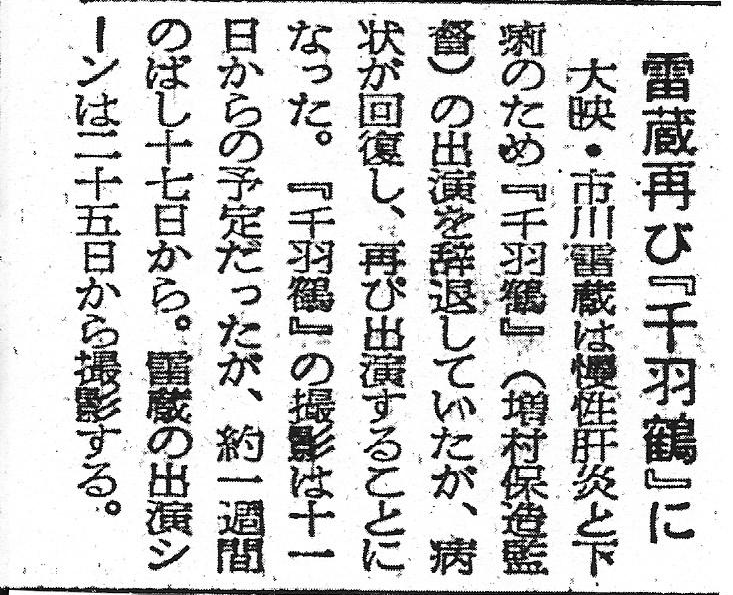 雷蔵再び『千羽鶴』に
大映・市川雷蔵は慢性肝炎と下
痢のため『千羽鶴』(増村保造監
督)の出演を辞退していたが、病
状が回復し、再び出演することに
なった。『千羽鶴』の撮影は十一
日からの予定だったが、約一週間
のばし十七日から。雷蔵の出演シ
ーンは二十五日から撮影する。